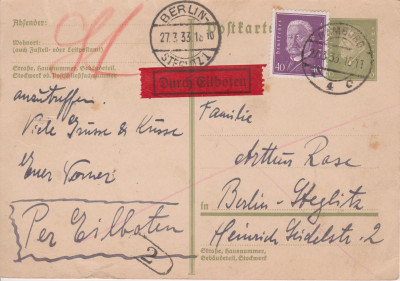 Absender:
Wohnort:
(auch Zustell- oder Leitpostamt)
Straße, Hausnummer, Gebäudeteil,
Stockwerk od. Postschließfachnummer
anzutreffen.
Viele Grüsse & Küsse
Euer Werner
Per Eilboten
2
BERLIN-
27.3.33.18-10
STEGLITZ 1
Durch Eilboten
Postkarte
40 40
4 C
Familie
Arthur Rose
in Berlin-Steglitz
Heinrich Seidelstr. 2
Straße, Hausnummer,
Gebäudeteil, Stockwerk